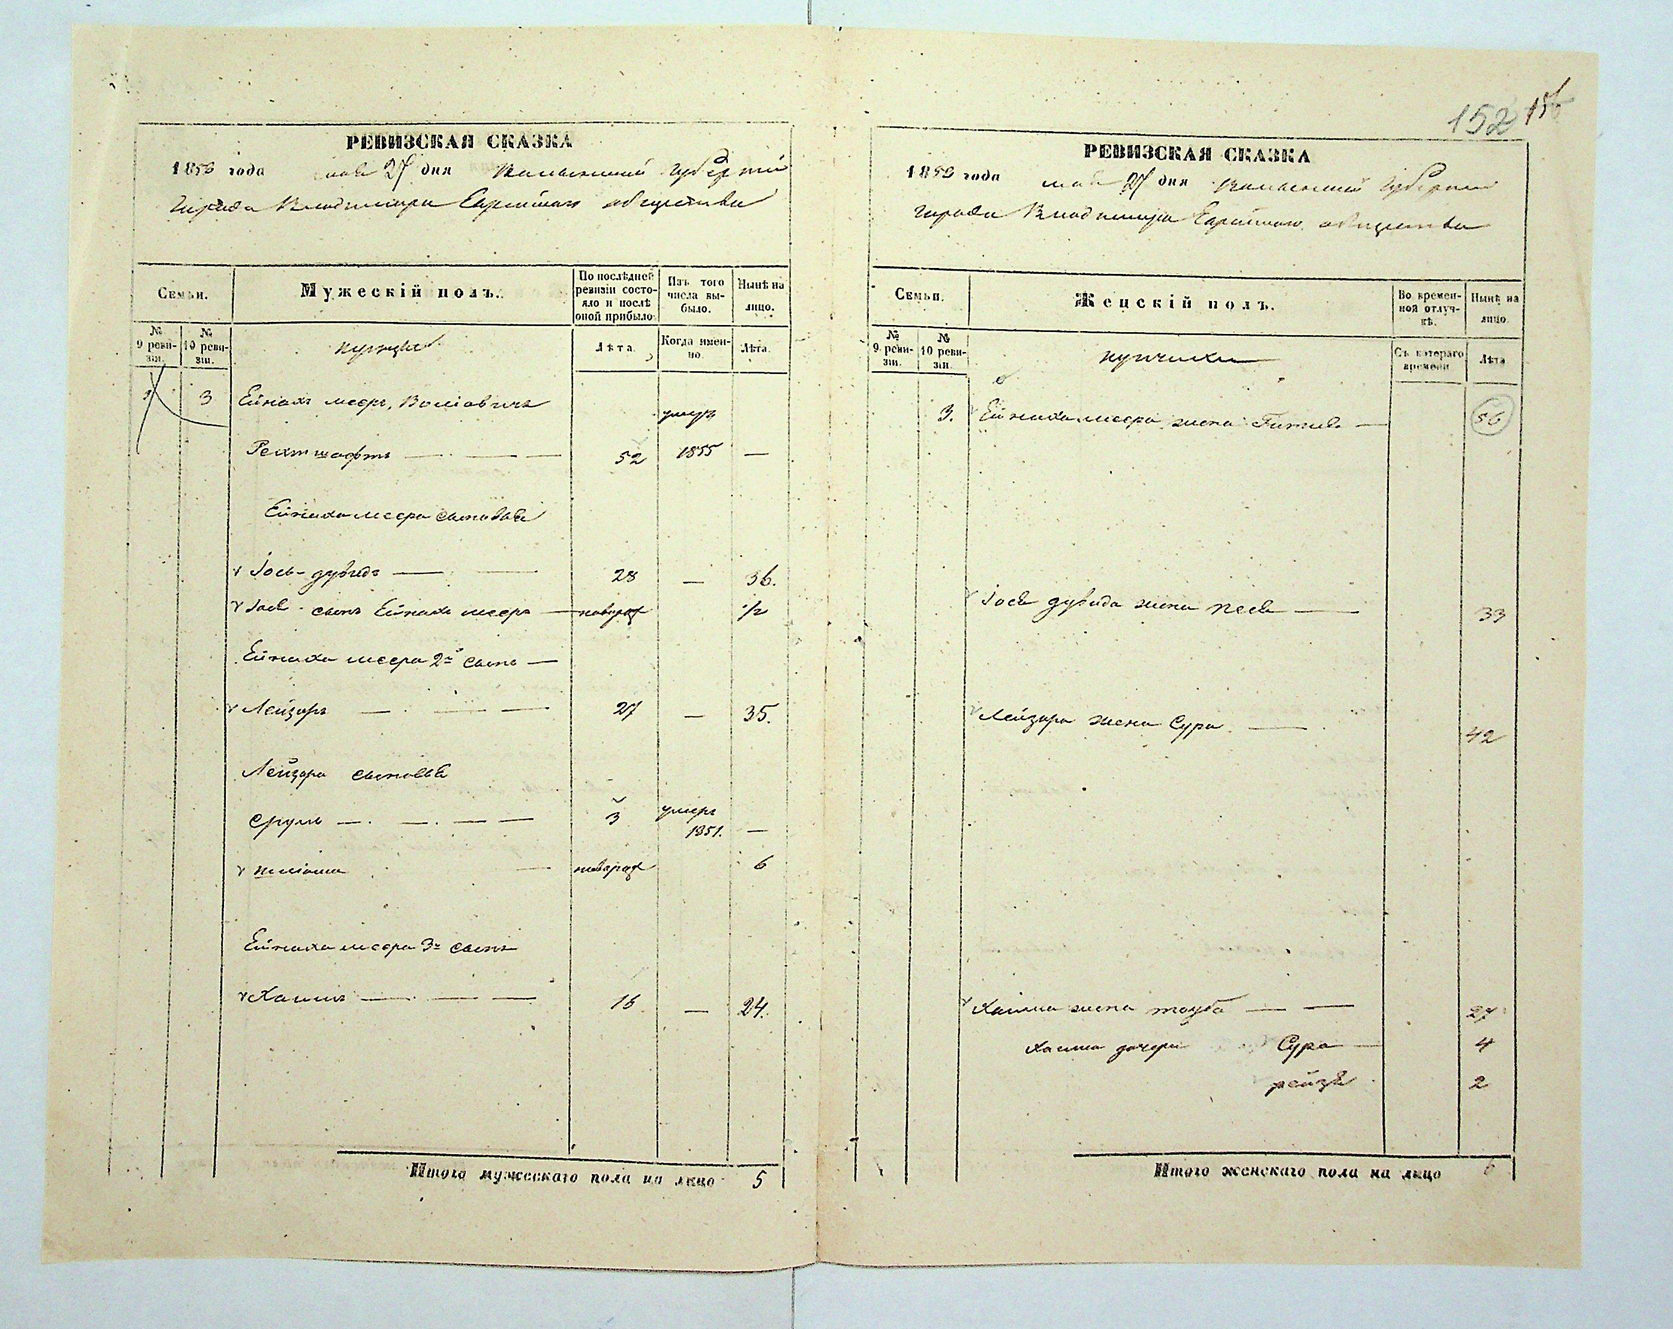 152 156
РЕВИЗСКАЯ СКАЗКА
1858 года мая 27 дня Волынской губернии
города Владимира Еврейского общества
Семьи.
Мужескій полъ.
По послѣдней ревизіи состояло и послѣ оной прибыло.
Изъ того числа выбыло.
Нынѣ на лицо.
№ 9 ревизіи.
№ 10 ревизіи.
купцы
Лѣта.
Когда именно.
Лѣта.
3 Ейнахъ мееръ, Вольовичъ умеръ
Рехтшафтъ 52 1855 —
Ейнаха меера сыновья
Іось-дувидъ 28 — 36.
сынъ Ейнаха меера новорож 1/2
Ейнаха меера 2й сынъ —
Лейзоръ 27 — 35.
Лейзора сыновья
Сруль 3 умеръ 1851. —
новорож 6
Ейнаха меера 3й сынъ
Хаимъ 16 — 24.
Итого мужескаго пола на лицо 5
РЕВИЗСКАЯ СКАЗКА
1858 года мая 27 дня Волынской губернии
города Владимира Еврейского общества
Семьи.
Женскій полъ.
Во временной отлучкѣ.
Нынѣ на лицо.
№ 9 ревизіи.
№ 10 ревизіи.
купчихи
Съ котораго времени
Лѣта
3. Ейнаха меера жена Гитля — 56
Іося дувида жена Песя — 33
Лейзора жена Сура — 42
Хаима жена тауба — 27
Хаима дочери Сура — 4
рейзя 2
Итого женскаго пола на лицо 6